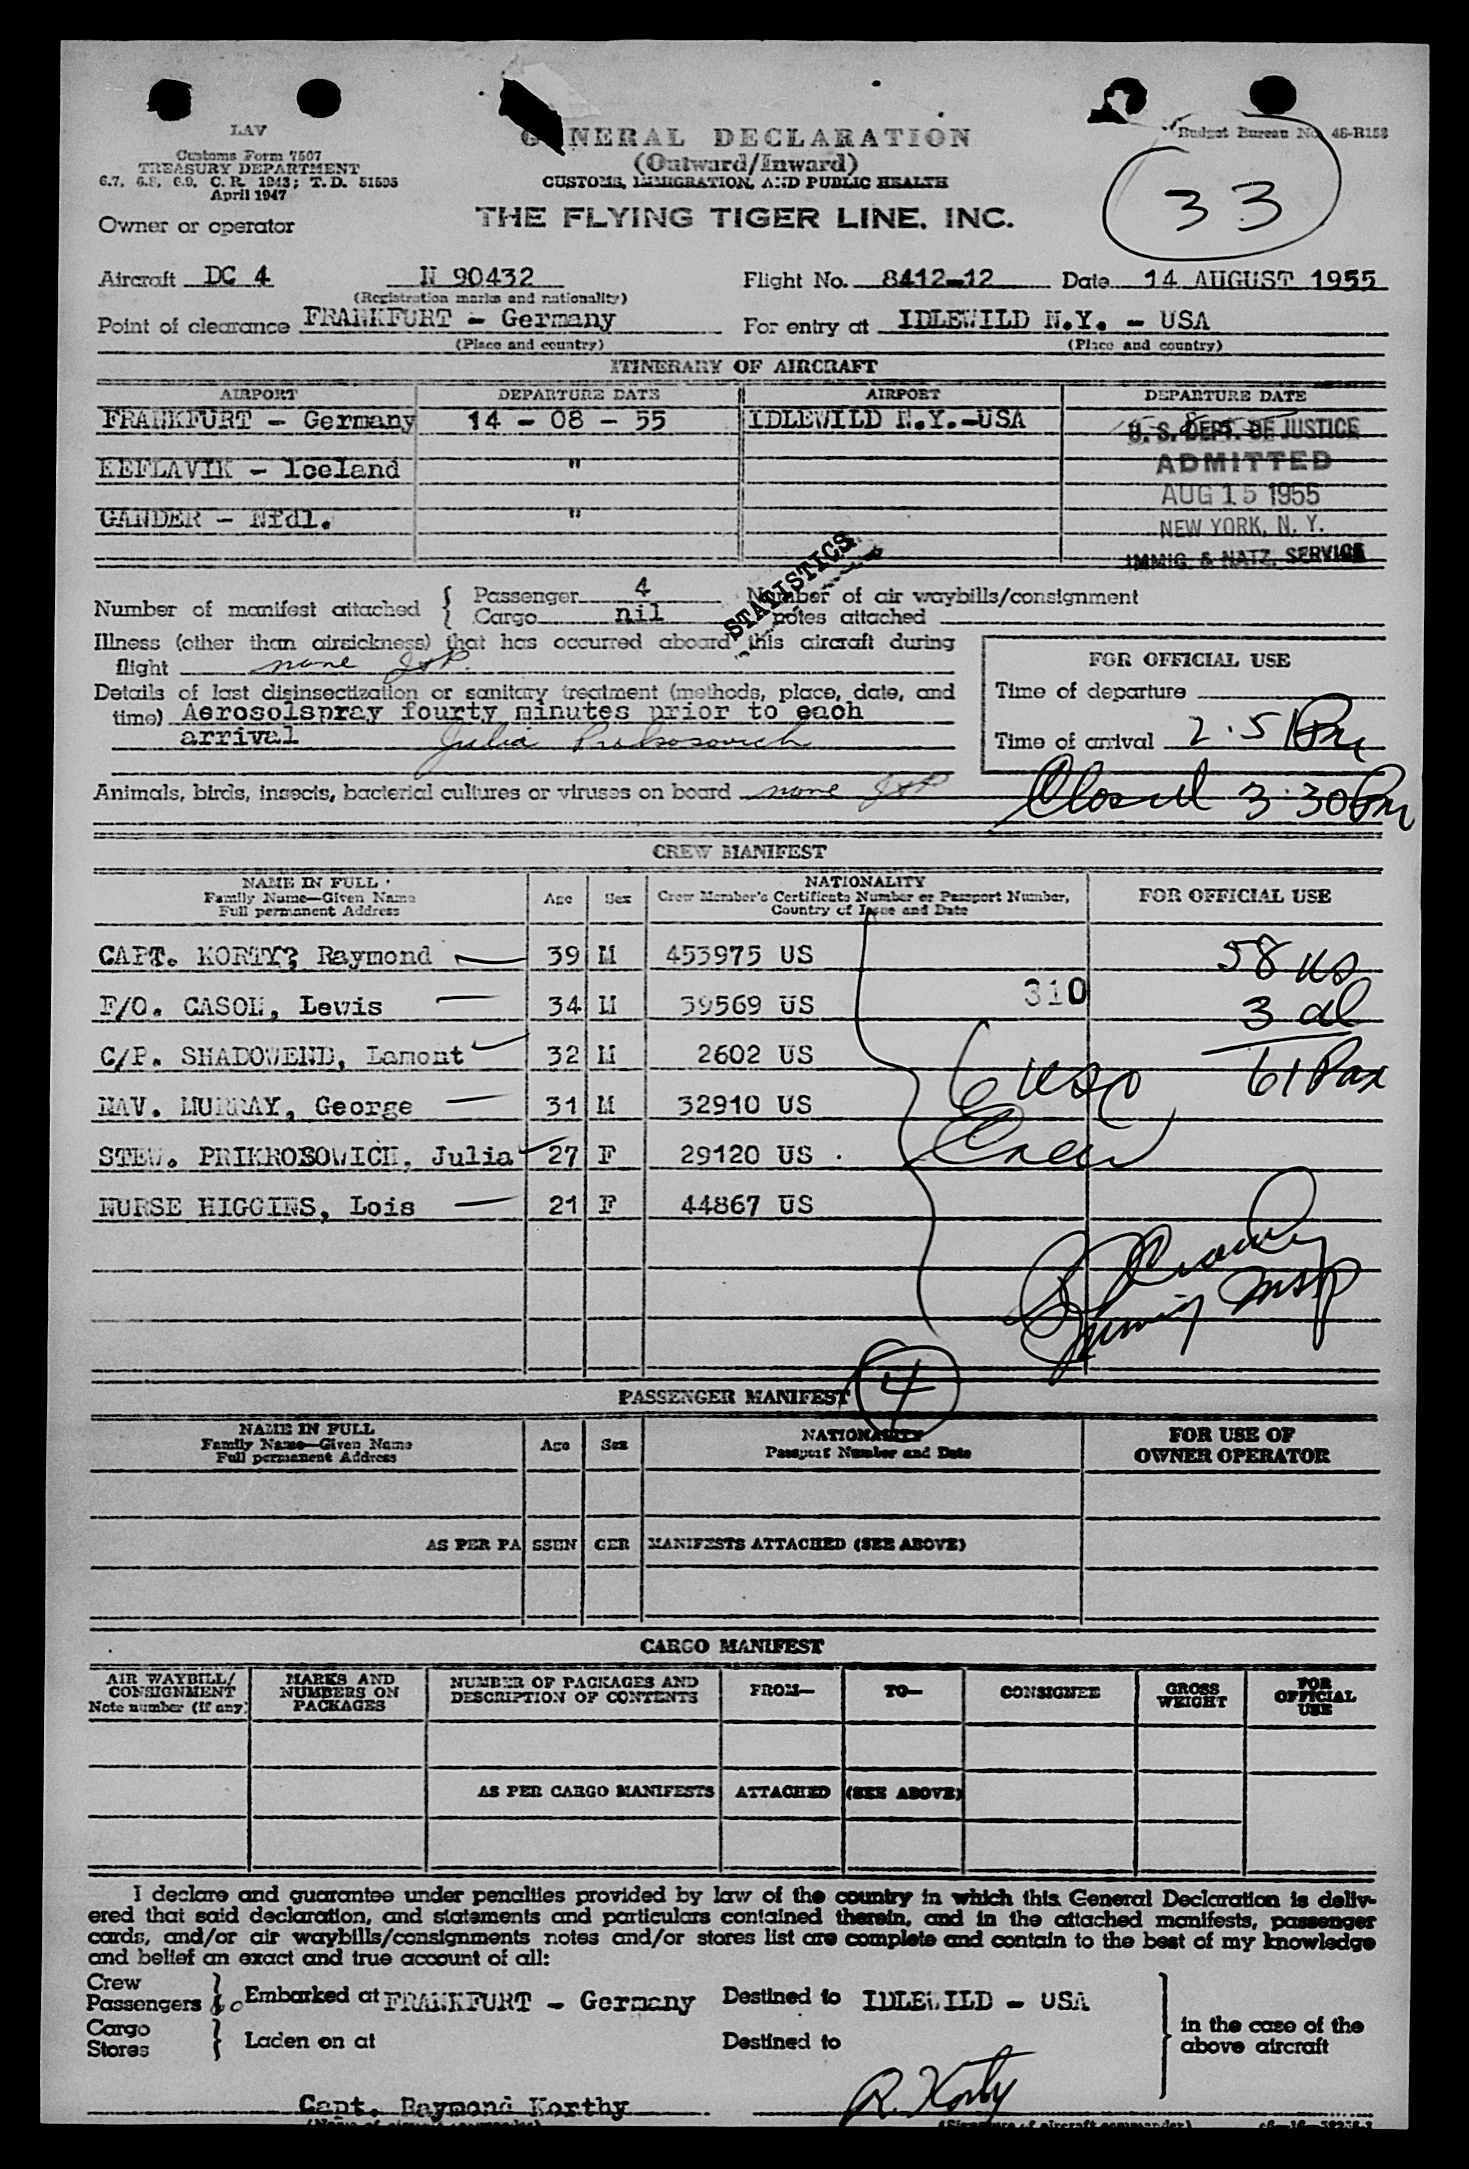 LAV
Customs Form 7507
TREASURY DEPARTMENT
6.7, 6.8, 6.9, C. R. 1943; T. D. 51595
April 1947
GENERAL DECLARATION
(Outward/Inward)
CUSTOMS, IMMIGRATION, AND PUBLIC HEALTH
Budget Bureau No. 48-R158
33
Owner or operator
THE FLYING TIGER LINE, INC.
Aircraft DC 4 N 90432 Flight No. 8412-12 Date 14 AUGUST 1955
(Registration marks and nationality)
Point of clearance FRANKFURT - Germany For entry at IDLEWILD N.Y. - USA
(Place and country) (Place and country)
ITINERARY OF AIRCRAFT
AIRPORT DEPARTURE DATE AIRPORT DEPARTURE DATE
FRANKFURT - Germany 14 - 08 - 55 IDLEWILD N.Y.-USA
U. S. DEPT. OF JUSTICE
KEFLAVIK - Iceland "
ADMITTED
AUG 15 1955
GANDER - Nfdl. "
NEW YORK, N. Y.
IMMIG. & NATZ. SERVICE
STATISTICS
Number of manifest attached { Passenger 4 Number of air waybills/consignment
Cargo nil notes attached
Illness (other than airsickness) that has occurred aboard this aircraft during
flight none JSP.
Details of last disinsectization or sanitary treatment (methods, place, date, and
time) Aerosolspray fourty minutes prior to each
arrival Julia
FOR OFFICIAL USE
Time of departure
Time of arrival 2.51 Pm
Animals, birds, insects, bacterial cultures or viruses on board none JSP
Closed 3:30 Pm
CREW MANIFEST
NAME IN FULL Age Sex NATIONALITY FOR OFFICIAL USE
Family Name—Given Name Crew Member's Certificate Number or Passport Number,
Full permanent Address Country of Issue and Date
CAPT. KORTY? Raymond 39 M 453975 US 58 us
310
F/O. CASON, Lewis 34 M 39569 US 3 al
C/P. SHADOWEND, Lamont 32 M 2602 US 61 Pax
6 usc
NAV. MURRAY, George 31 M 32910 US
Crew
STEW. PRIKROSOWICH, Julia 27 F 29120 US
NURSE HIGGINS, Lois 21 F 44867 US
PASSENGER MANIFEST 4
NAME IN FULL Age Sex NATIONALITY FOR USE OF
Family Name—Given Name Passport Number and Date OWNER OPERATOR
Full permanent Address
AS PER PASSENGER MANIFESTS ATTACHED (SEE ABOVE)
CARGO MANIFEST
AIR WAYBILL/ MARKS AND NUMBER OF PACKAGES AND FROM— TO— CONSIGNEE GROSS FOR
CONSIGNMENT NUMBERS ON DESCRIPTION OF CONTENTS WEIGHT OFFICIAL
Note number (if any) PACKAGES USE
AS PER CARGO MANIFESTS ATTACHED (SEE ABOVE)
I declare and guarantee under penalties provided by law of the country in which this General Declaration is deliv-
ered that said declaration, and statements and particulars contained therein, and in the attached manifests, passenger
cards, and/or air waybills/consignments notes and/or stores list are complete and contain to the best of my knowledge
and belief an exact and true account of all:
Crew
Passengers } Embarked at FRANKFURT - Germany Destined to IDLEWILD - USA
Cargo
Stores } Laden on at Destined to
in the case of the
above aircraft
Capt. Raymond Korthy R. Korty
(Name of aircraft commander) (Signature of aircraft commander)